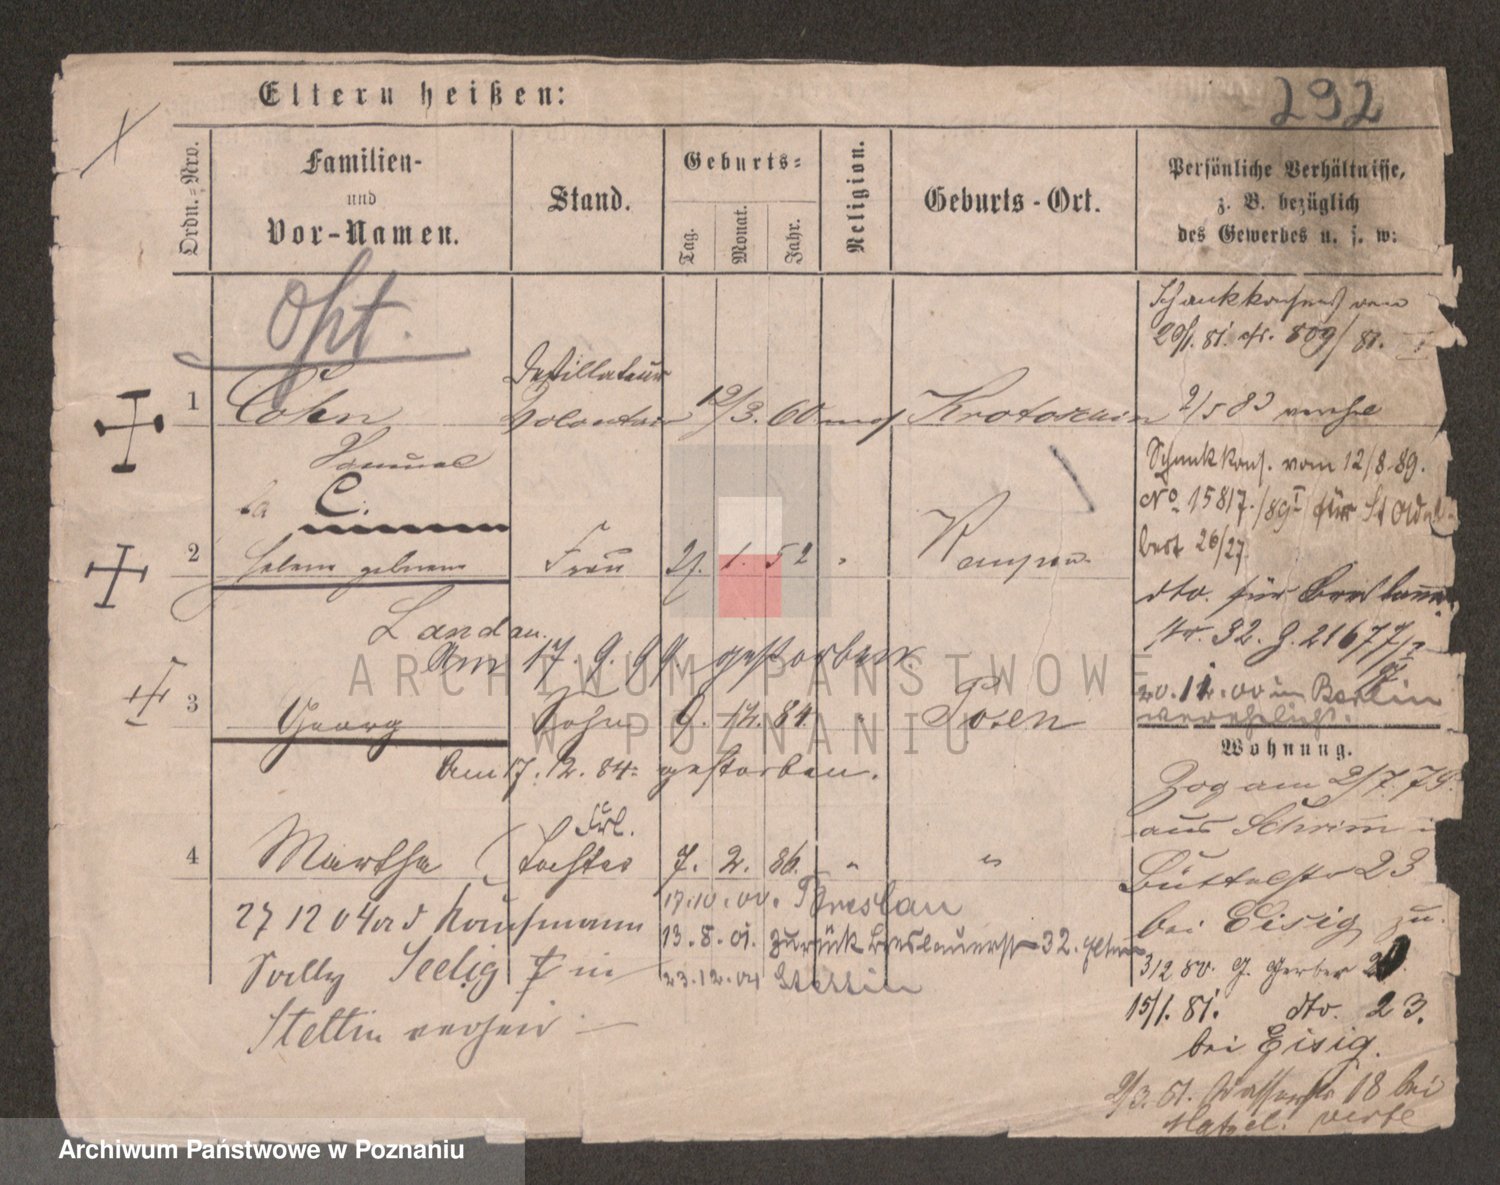 Eltern heißen:
292
Ordn.-Nro.
Familien-
und
Vor-Namen.
Stand.
Geburts-
Tag.
Monat.
Jahr.
Religion.
Geburts-Ort.
Persönliche Verhältnisse,
z. B. bezüglich
des Gewerbes u. s. w:
Opt.
Schankkonsens von
29/1. 81. 809/81. I
1 Cohn Destillateur Volontair 12/3. 60 mos Krotoschin 2/5 83 verh
Samuel
Schankkons. vom 12/8 89.
C.
No 15817/89 I für St Adal
bert 26/27.
2 Helene geborene Frau 27. 1. 52 " Kempen
dto. für Breslauer
Landau.
Nr. 32. J. 21677/
Am 17 9. 99 gestorben.
20. 12. 00 in Berlin
verehelicht.
3 Georg Sohn 9. 12. 84. " Posen
Am 17. 12. 84 gestorben.
Wohnung.
Zog am 2/7. 79.
aus Schrimm in
Frl.
4 Martha Tochter 7. 2. 86. " "
Büttelstr 23
bei Eisig zu.
17.10.00. Breslau
27 12 04 Kaufmann
13. 8. 01. zurück Breslauerstr 32. Eltern
3/2 80. Gr. Gerber
Sally Seelig in
23.12.04 Stettin
15/1. 81. dto. 23.
Stettin verheir
bei Eisig.
2/3. 81. Wasserstr 18 bei
ARCHIWUM PAŃSTWOWE
W POZNANIU
Archiwum Państwowe w Poznaniu